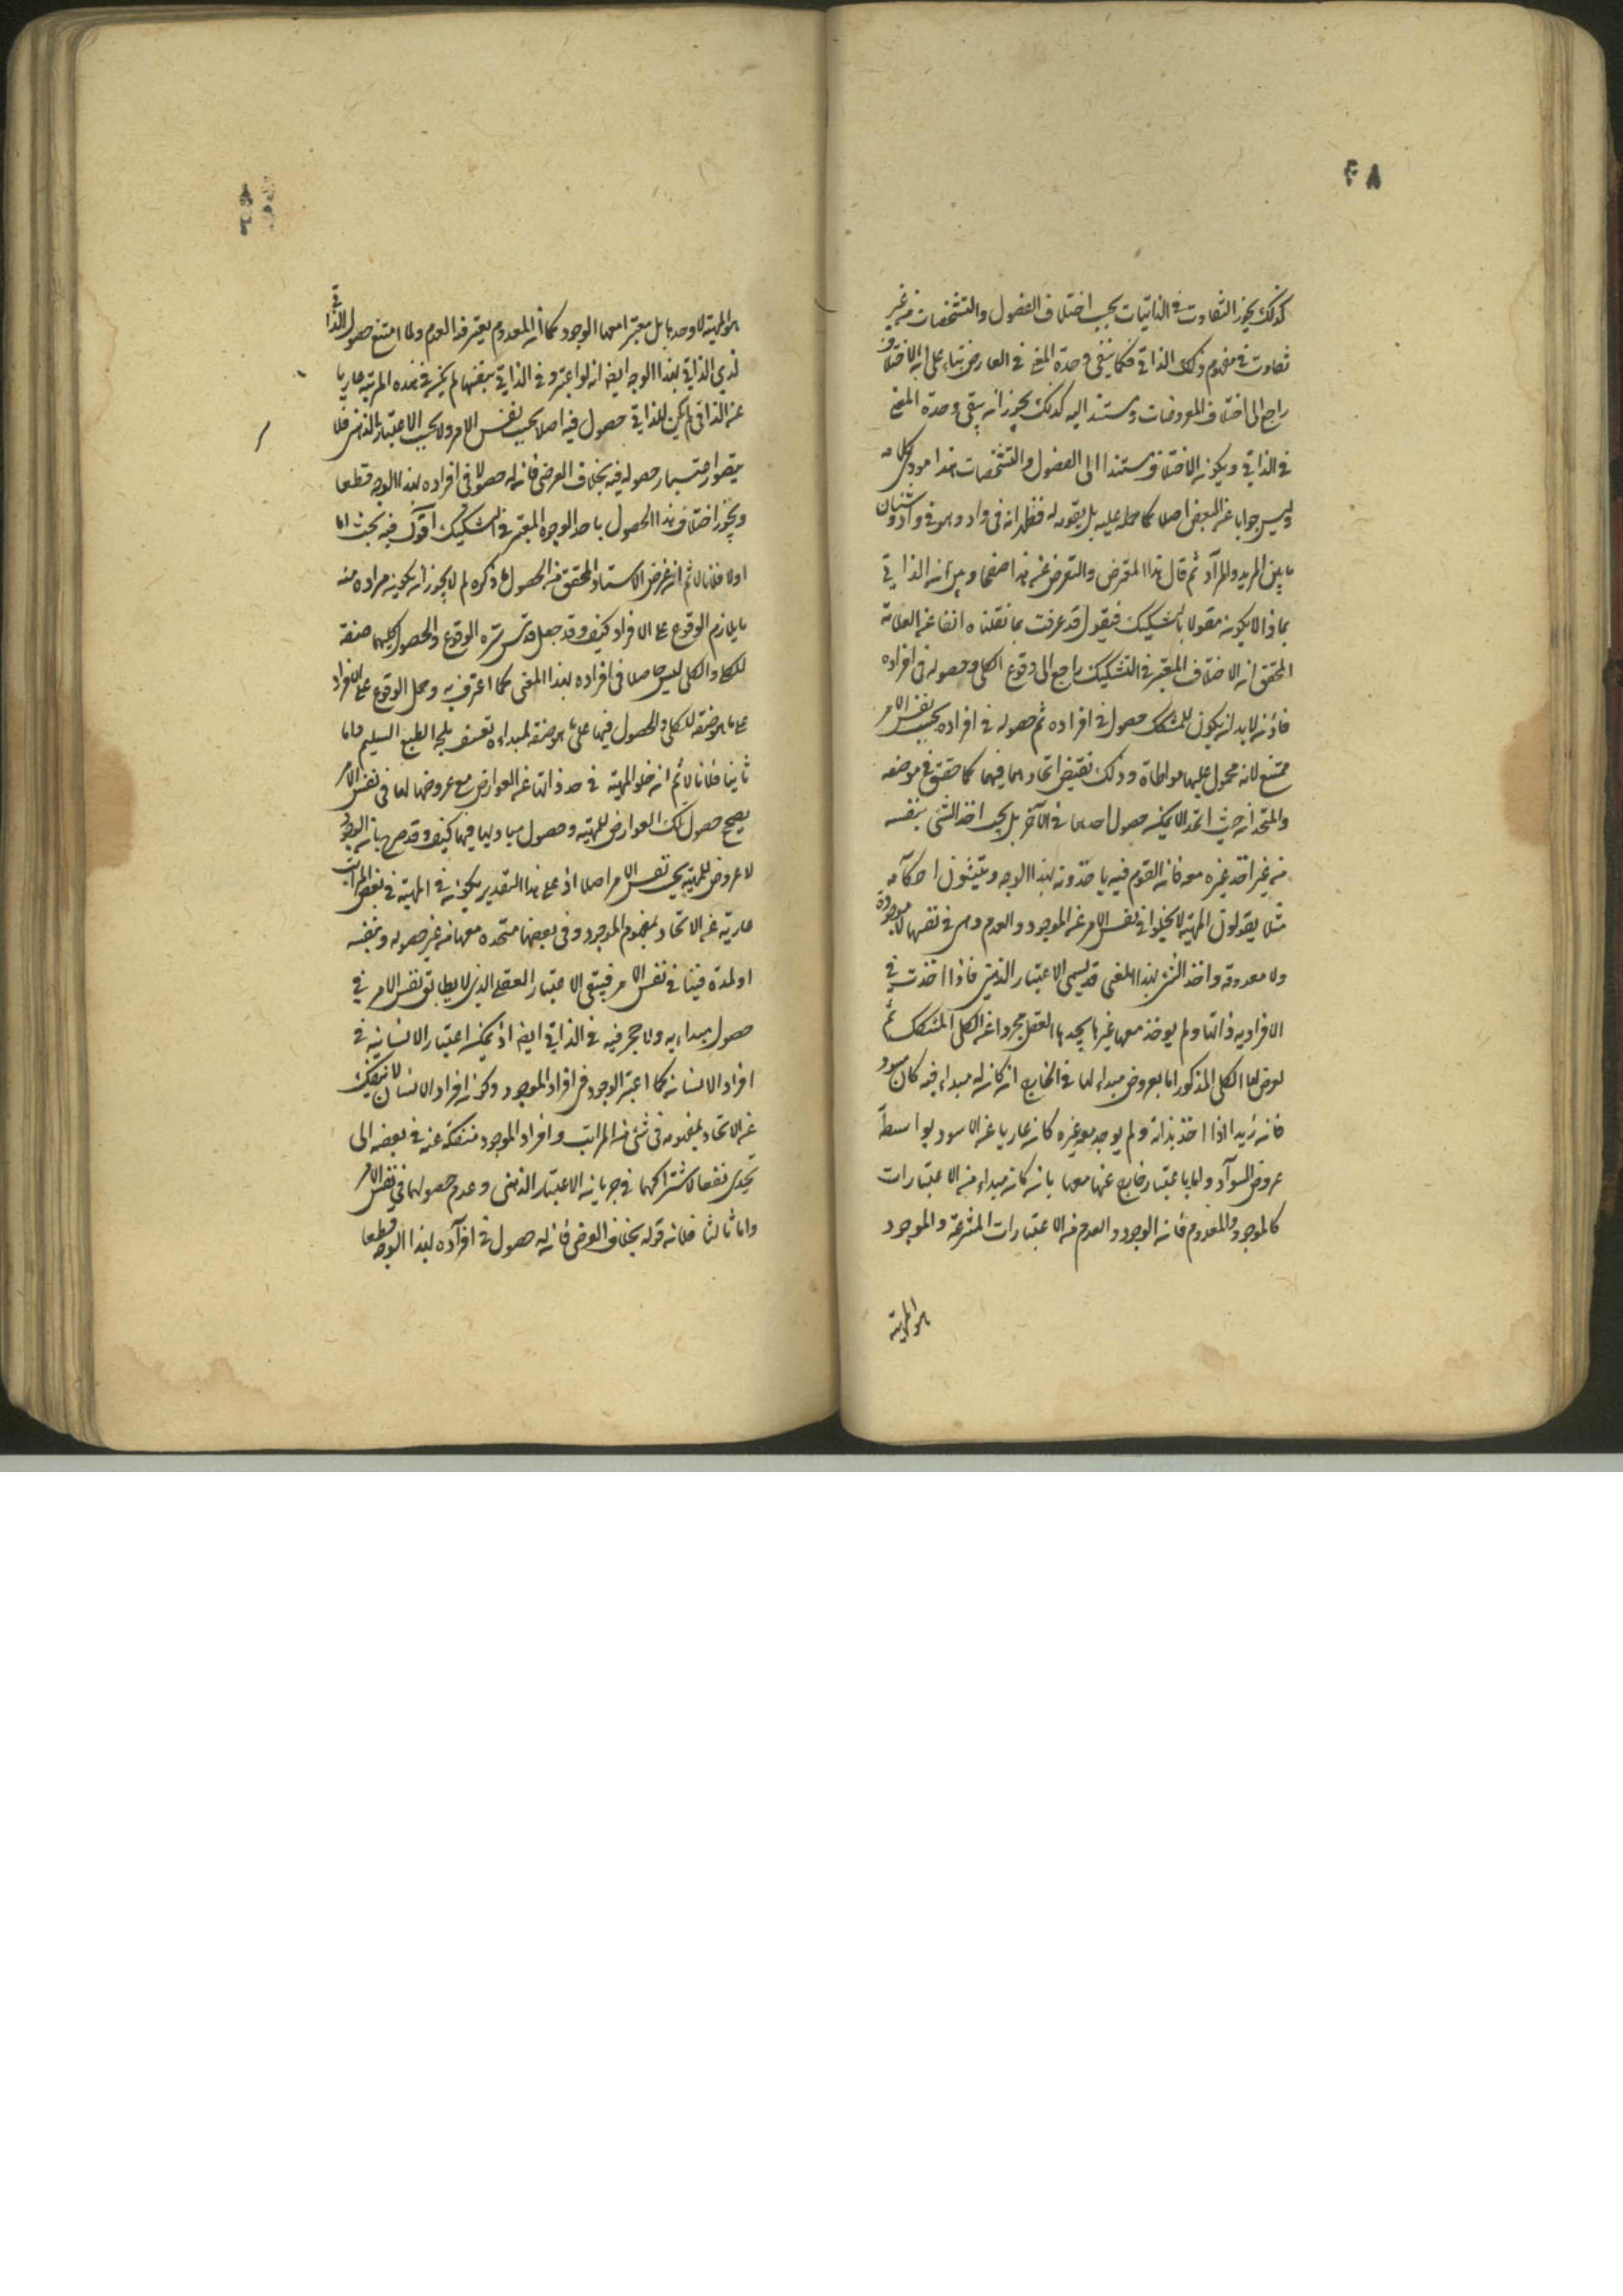 كذلك يجوز التفاوت في الذاتيات بحسب اختلاف الفصول والتشخصات من غير
تفاوت في مفهوم ذلك الذاتي فكما يبقى وحدة المعنى في العارض بناء على ان الاختلاف
راجع الى اختلاف المعروضات ومستند اليه كذلك يجوز ان يبقى وحدة المعنى
في الذاتي ويكون الاختلاف مستندا الى الفصول والتشخصات هذا مودى كلامه
وليس جوابا عن البعض اصلا كما حمله عليه بل يقويه له فظهر انه في واد وهو في واد وشتان
ما بين المريد والمراد ثم قال هذا المعترض والتعرض عن هذا صفحا وبين ان الذاتي
بماذا لا يكون مقولا بالتشكيك فيقول قد عرفت بما نقلناه انفا عن العلامة
المحقق ان الاختلاف المعتبر في التشكيك راجع الى وقوع الكلي وحصوله في افراده
فاذن لا بد ان يكون للمشكك حصول في افراده ثم حصوله في افراده بحسب نفس الامر
ممتنع لانه محمول عليها مواطاة وذلك يقتضي اتحادهما فيها كما حقق في موضعه
والمتحدان حيث اتحدا لا يمكن حصول احدهما في الاخر بل يجب اخذ الشي بنفسه
من غير اخذ غيره معه فان القوم فيه ياخذونه بهذا الوجه ويثبتون احكامه
مثلا يقولون المهية لا يخلو في نفس الامر عن الموجود والعدم وهي في نفسها لا موجودة
ولا معدومة واخذ الشي بهذا المعنى قد يسمى الاعتبار الذهني فاذا اخذت في
الافراد به ذاتها ولم يوخذ معها غيرها يجدها العقل مجردا عن الكلي المشكك ثم
يعرض لها الكلي المذكور اما بعروض مبداء لها في الخارج ان كان له مبداء فيه كالاسود
فان زيدا اذا اخذ بذاته ولم يوجد معه غيره كان عاريا عن الاسود بواسطة
عروض السواد واما باعتبار خارج عنها معها بان كان مبداء من الاعتبارات
كالموجود والمعدوم فان الوجود والعدم من الاعتبارات المنتزعة والموجود
هو المهية
هو المهية لا وحدها بل معتبرا معها الوجود كما ان المعدوم يعتبر فيه العدم ولما امتنع حصول الذاتي في
لذي الذاتي بهذا الوجه ايضا اذ لو اعتبر وفي الذاتي بنفسها لم يكن في هذه المرتبة عاريا
عن الذاتي لم يكن للذاتي حصول فيه اصلا بحسب نفس الامر ولا بحسب الاعتبار الذهني فلا
يتصور اعتبار حصوله فيه بخلاف العرضي فان له حصولا في افراده بهذا الوجه قطعا
ويجوز اختلاف هذا الحصول باحد الوجوه المعتبر في التشكيك اقول فيه بحث اما
اولا فلانا لا ثم ان غرض الاستاد المحقق من الحصول ما ذكره لم لا يجوز ان يكون مراده منه
ما يلازم الوقوع على الافراد كيف وقد جعل قدس سره الوقوع والحصول كليهما صفة
للكلي والكلي ليس حاصلا في افراده بهذا المعنى كما اعترف به وحمل الوقوع على الافراد
على ما هو صفة للكلي والحصول فيها على ما هو صفة لمبداءه تعسف يمجه الطبع السليم واما
ثانيا فلانا لا ثم ان خلو المهية في حد ذاتها عن العوارض مع عروضها لها في نفس الامر
يصحح حصول تلك العوارض للمهية وحصول مباديها فيها كيف وقد صرح بان الوجود
لا عروض للمهية بحسب نفس الامر اصلا اذ على هذا التقدير يكون في المهية في بعض المراتب
عارية عن الاتحاد بمفهوم الموجود وفي بعضها متحدة معها من غير حصوله وبنفسه
او لمبدءه فيها في نفس الامر فيبقى الاعتبار العقلي الذي لا يطابق نفس الامر في
حصول مبداءيه ولا حجر فيه في الذاتي ايضا اذ يمكن اعتبار الانسانية في
افراد الانسان كما اعتبر الوجود في افراد الموجود وكون افراد الانسان لا ينفك
عن الاتحاد بمفهومه في شي من المراتب وافراد الموجود منفكة عنه في بعضه الى
يجدي نفعا لاشتراكهما في جريان الاعتبار الذهني وعدم حصولهما في نفس الامر
واما ثالثا فلان قوله بخلاف العرضي فان له حصول في افراده بهذا الوجه قطعا